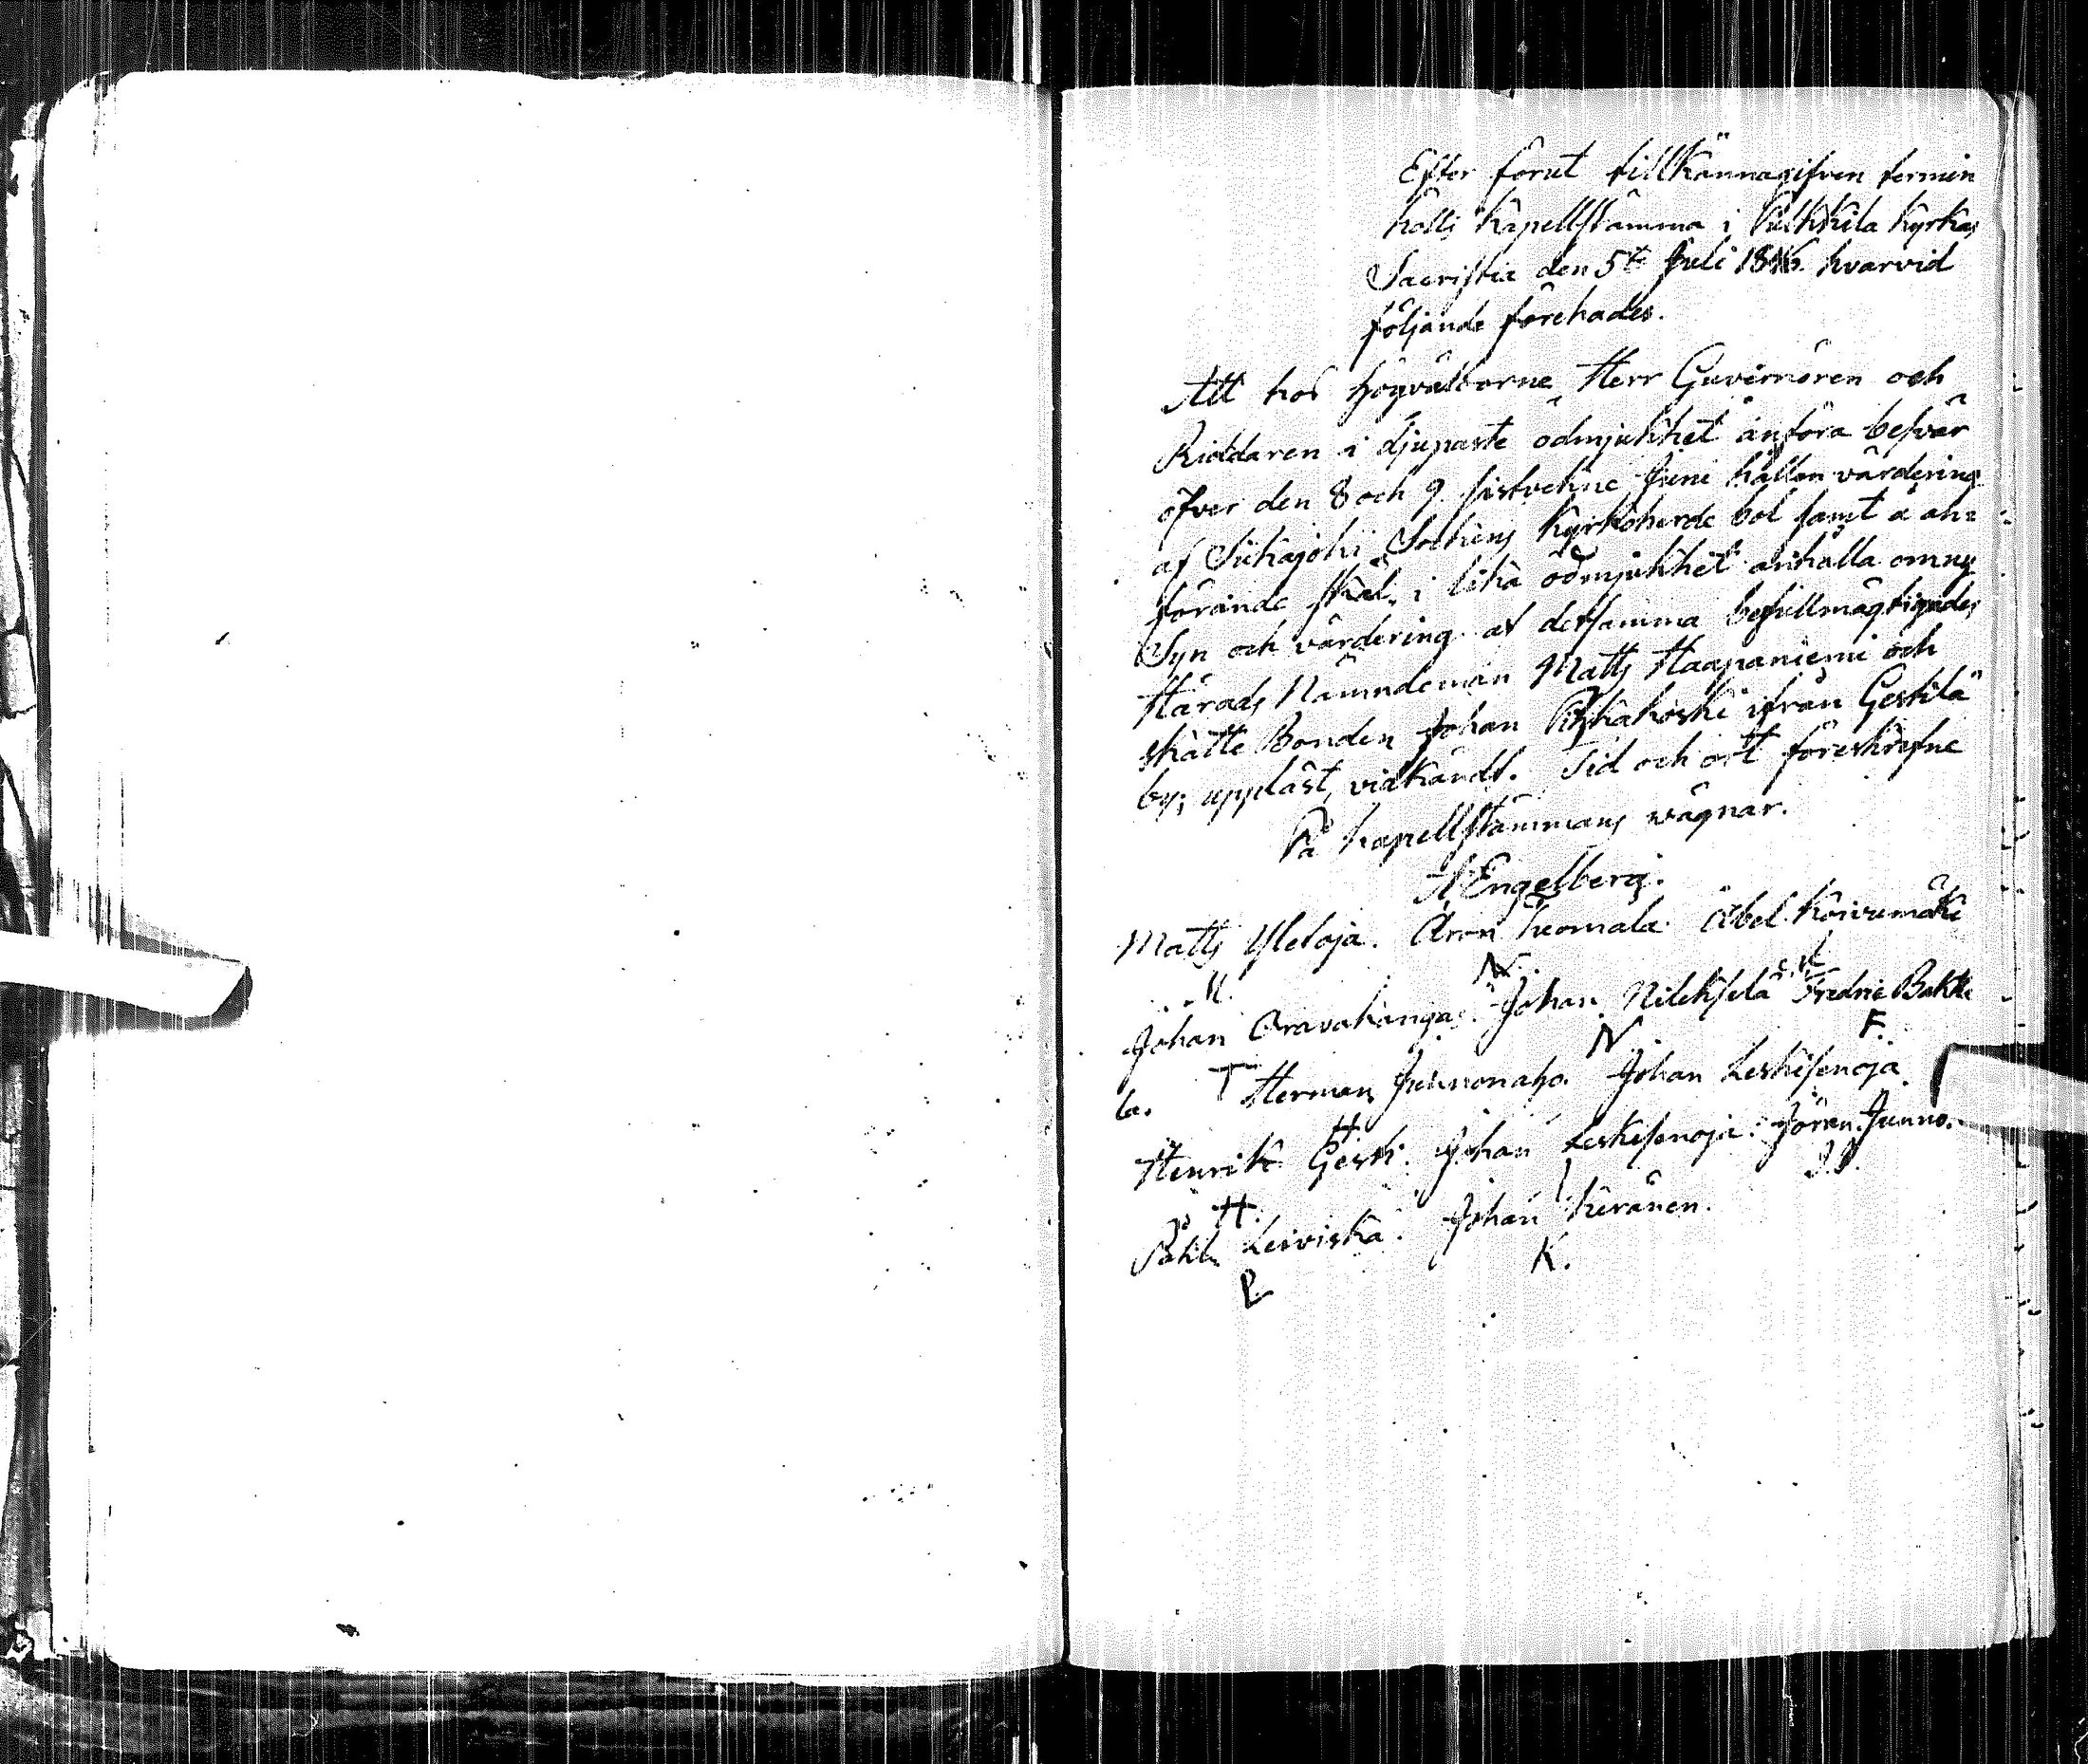 Efter förut tillkännagifven termin
hölls kapellstämma i Pulkkila Kyrkas
Sacristia den 5te Juli 1846. hvarvid
följande förehades.
Att hos Högvälborne Herr Guvernören och
Riddaren i djupaste ödmjukhet anföra besvär
öfver den 8 och 9 sistvekne Juni hållen värdering
af Siikajoki Sockens Kyrkoherde bol samt å an=
förande skäl, i lika ödmjukhet anhålla om ny
Syn och värdering af detsamma befullmägtigades
Härads Nämndeman Matts Haapaniemi och
skatte Bonden Johan ifrån Gestilä
by; uppläst, vidkändt. Tid och ort föreskrefne
På kapellstämmans vägnar.
A Engelberg.
Matts Yletoja. Aron Tuomala. Abel Koivumäki
M. N A.K
Johan Oravakangas. Johan Nileksela Fredric Bakke
T N F.
la. Herman Junnonaho. Johan Leskisenoja
H
Henrik Gesti. Johan Leskisenoja. Jöran Junno.
H. I J.J.
Påhl Leiviskä. Johan Keränen.
P K.